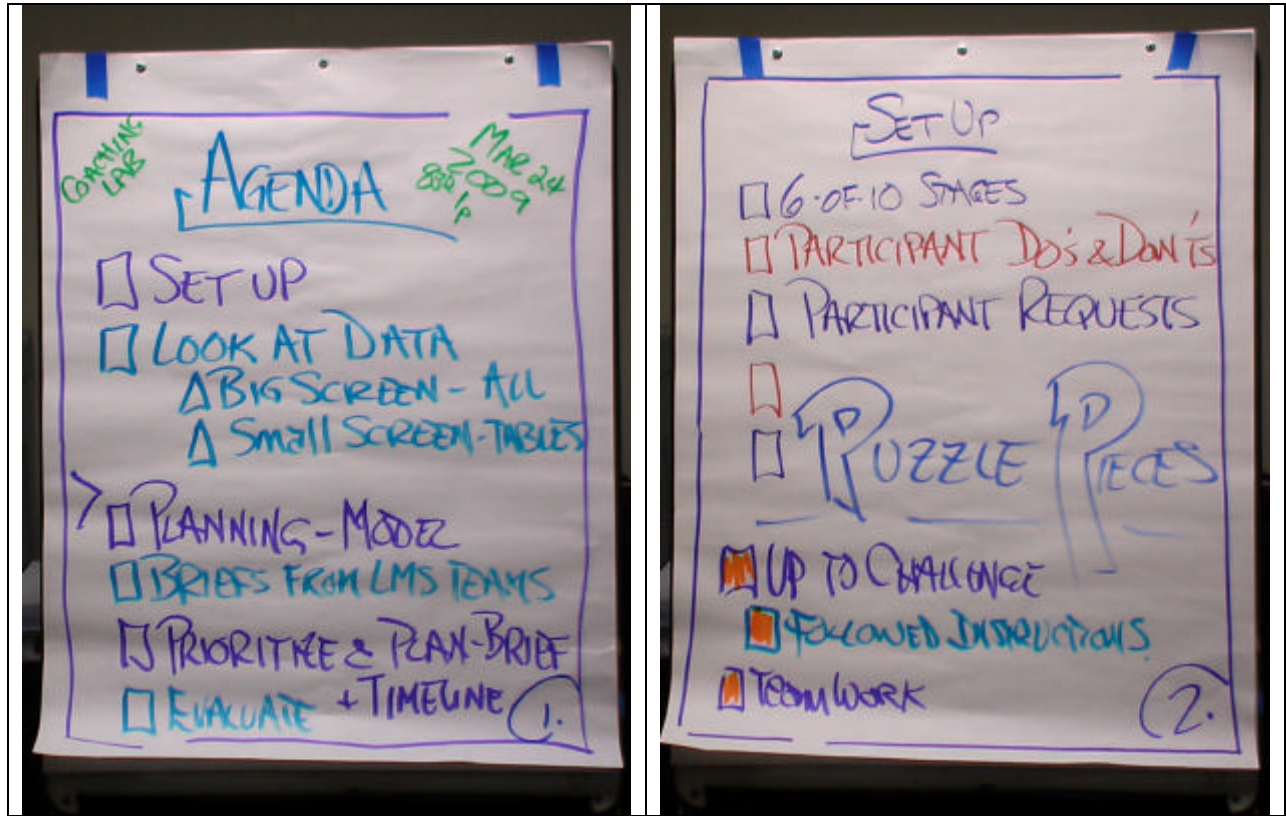 COACHING
LAB
AGENDA
MAR 24
2009
SET UP
LOOK AT DATA
BIG SCREEN - ALL
Small SCREEN - TABLES
PLANNING - MODEL
BRIEFS FROM LMS TEAMS
PRIORITIZE & PLAN - BRIEF
+ TIMELINE
EVALUATE
1.
SET UP
6-OF-10 STAGES
PARTICIPANT DO'S & DON'TS
PARTICIPANT REQUESTS
PUZZLE PIECES
UP TO CHALLENGE
FOLLOWED INSTRUCTIONS
TEAMWORK
2.